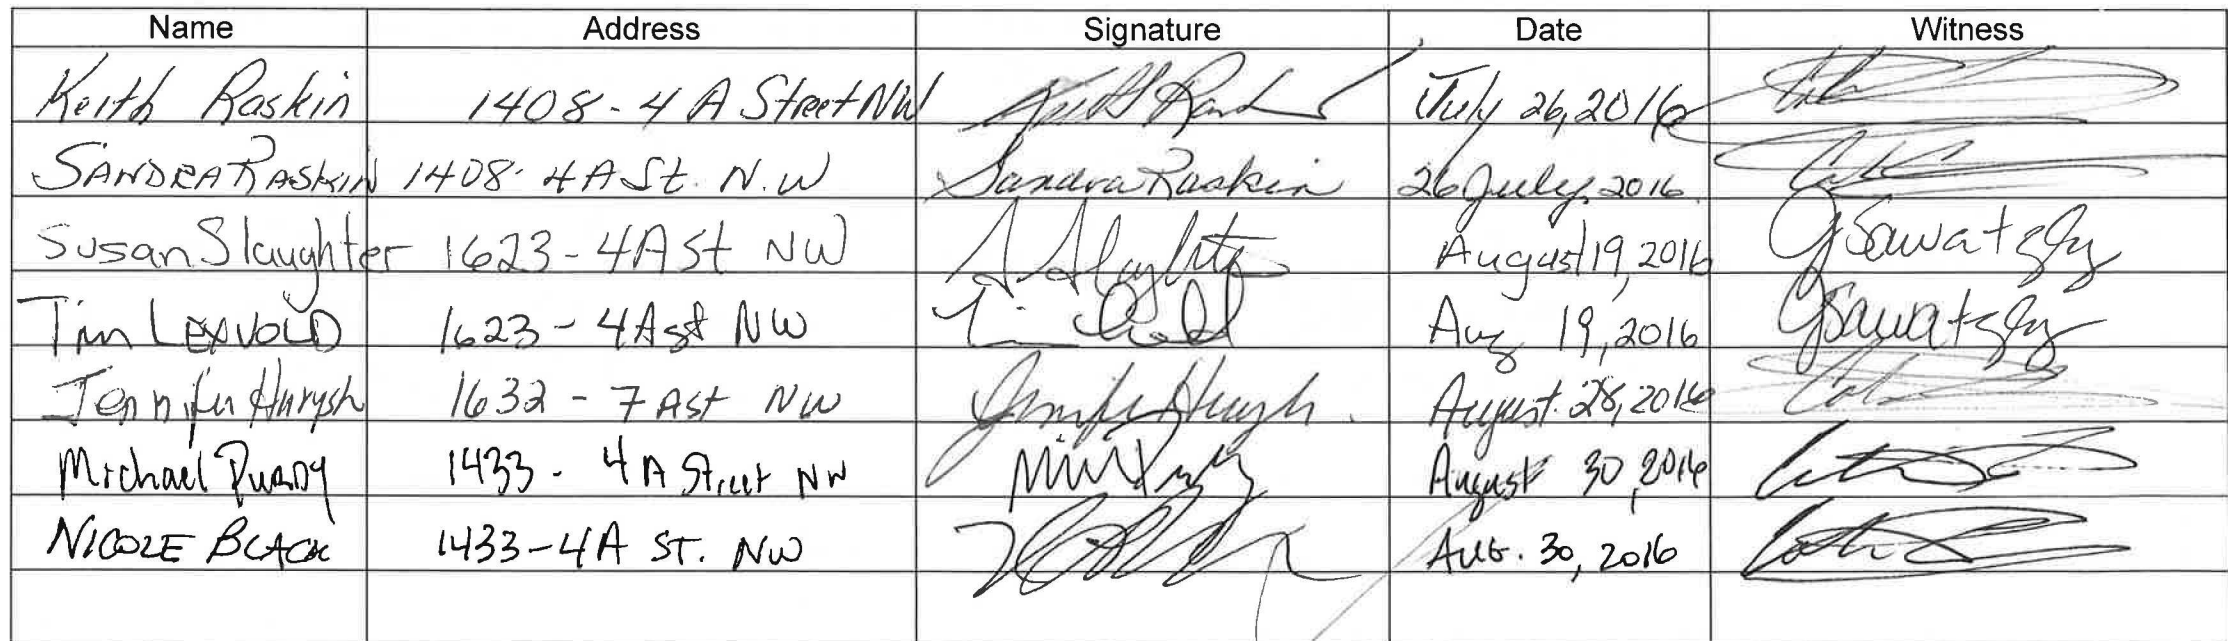 Name Address Signature Date Witness
Keith Raskin 1408-4 A Street NW July 26, 2016
SANDRA RASKIN 1408-4A St. N.W Sandra Raskin 26 July, 2016.
Susan Slaughter 1623-4A St NW S Slaughter August 19, 2016 GSawatzky
Tim LEXVOLD 1623-4A st NW Aug 19, 2016 GSawatzky
Jennifer 1632-7 A st NW August 28, 2016
Michael Purdy 1433-4 A Street NW August 30, 2016
NICOLE BLACK 1433-4A ST. NW AUG. 30, 2016